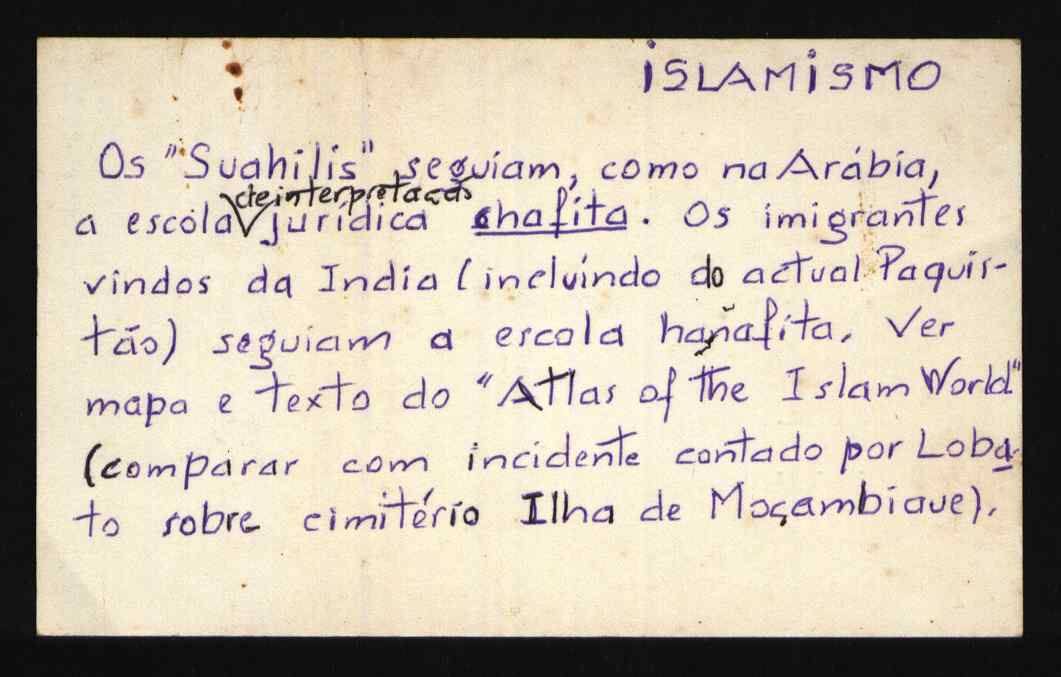 ISLAMISMO
Os "Suahilis" seguiam, como na Arábia,
de interpretação
a escola jurídica chafita. Os imigrantes
vindos da India (incluíndo do actual Paquis-
tão) seguiam a escola hanafita. Ver
mapa e texto do "Atlas of the Islam World"
(comparar com incidente contado por Loba-
to sobre cimitério Ilha de Moçambique).